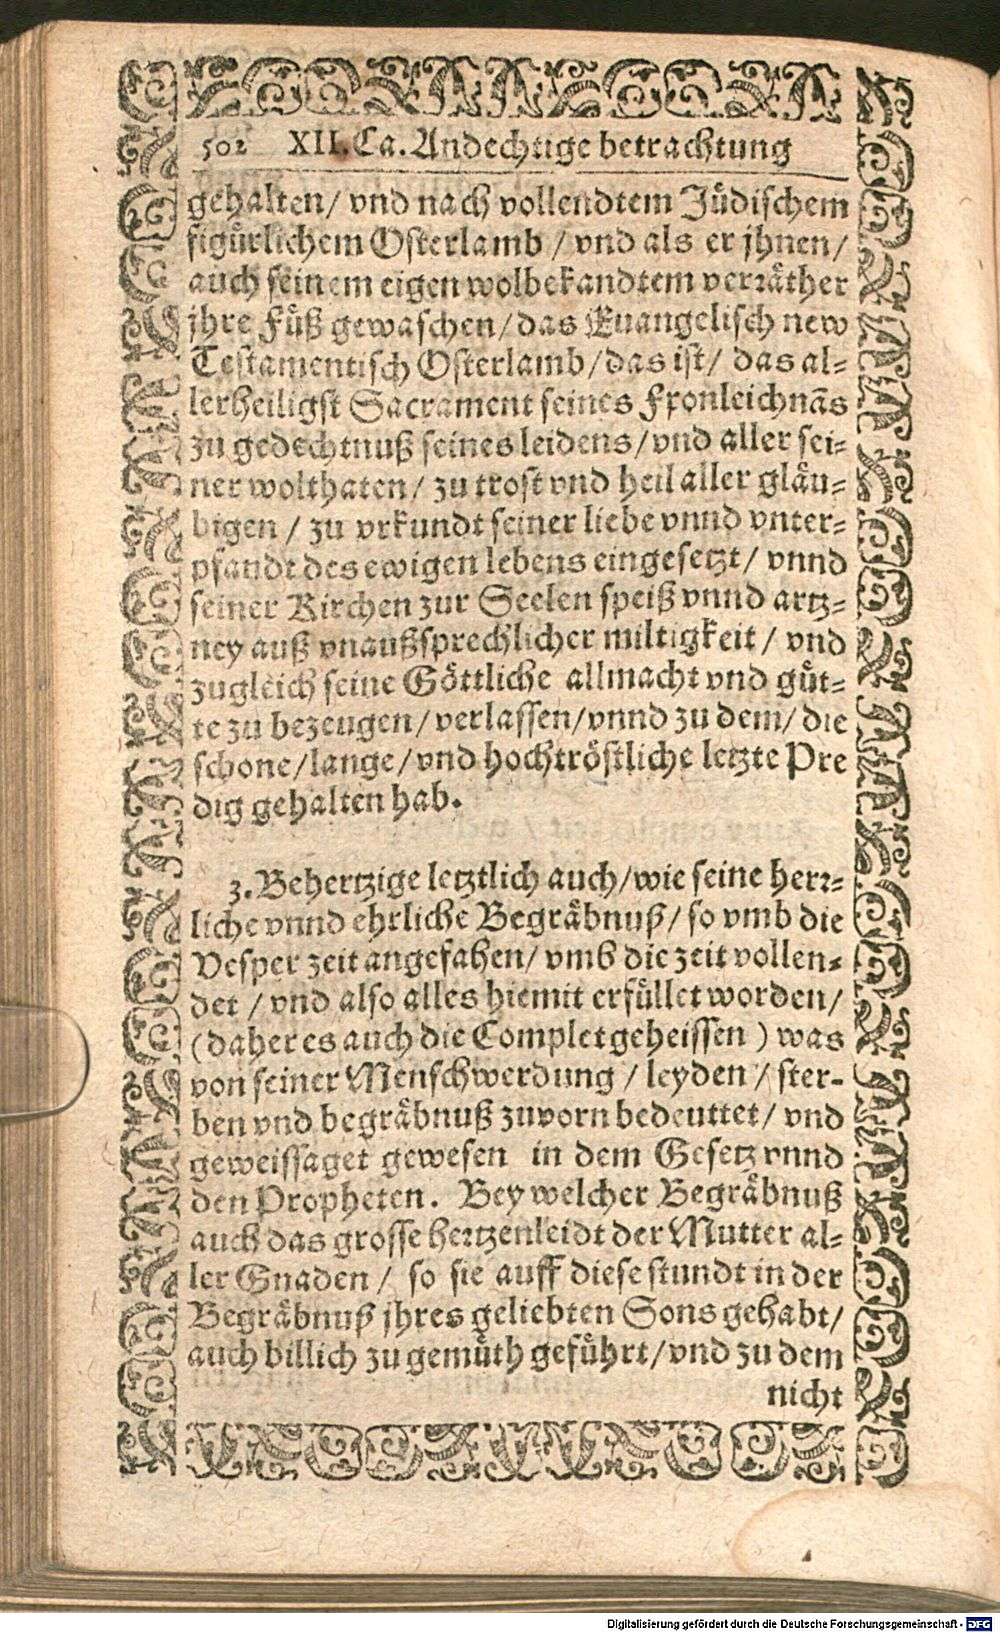 502 XII. Ca. Andechtige betrachtung
gehalten/ vnd nach vollendtem Jüdischem
figürlichem Osterlamb / vnd als er jhnen/
auch seinem eigen wolbekandtem verräther
jhre Füß gewaschen/ das Euangelisch new
Testamentisch Osterlamb/ das ist/ das al-
lerheiligst Sacrament seines Fronleichnãs
zu gedechtnuß seines leidens/ vnd aller sei-
ner wolthaten/ zu trost vnd heil aller gläu-
bigen / zu vrkundt seiner liebe vnnd vnter-
pfandt des ewigen lebens eingesetzt/ vnnd
seiner Kirchen zur Seelen speiß vnnd artz-
ney auß vnaußsprechlicher miltigkeit/ vnd
zugleich seine Göttliche allmacht vnd güt-
te zu bezeugen/ verlassen/ vnnd zu dem/ die
schone/ lange/ vnd hochtröstliche letzte Pre
dig gehalten hab.
3. Behertzige letztlich auch/ wie seine herr-
liche vnnd ehrliche Begräbnuß/ so vmb die
Vesper zeit angefahen/ vmb die zeit vollen-
det / vnd also alles hiemit erfüllet worden/
(daher es auch die Complet geheissen) was
von seiner Menschwerdung / leyden / ster-
ben vnd begräbnuß zuvorn bedeuttet/ vnd
geweissaget gewesen in dem Gesetz vnnd
den Propheten. Bey welcher Begräbnuß
auch das grosse hertzenleidt der Mutter al-
ler Gnaden / so sie auff diese stundt in der
Begräbnuß jhres geliebten Sons gehabt/
auch billich zu gemüth geführt/ vnd zu dem
nicht
Digitalisierung gefördert durch die Deutsche Forschungsgemeinschaft - DFG